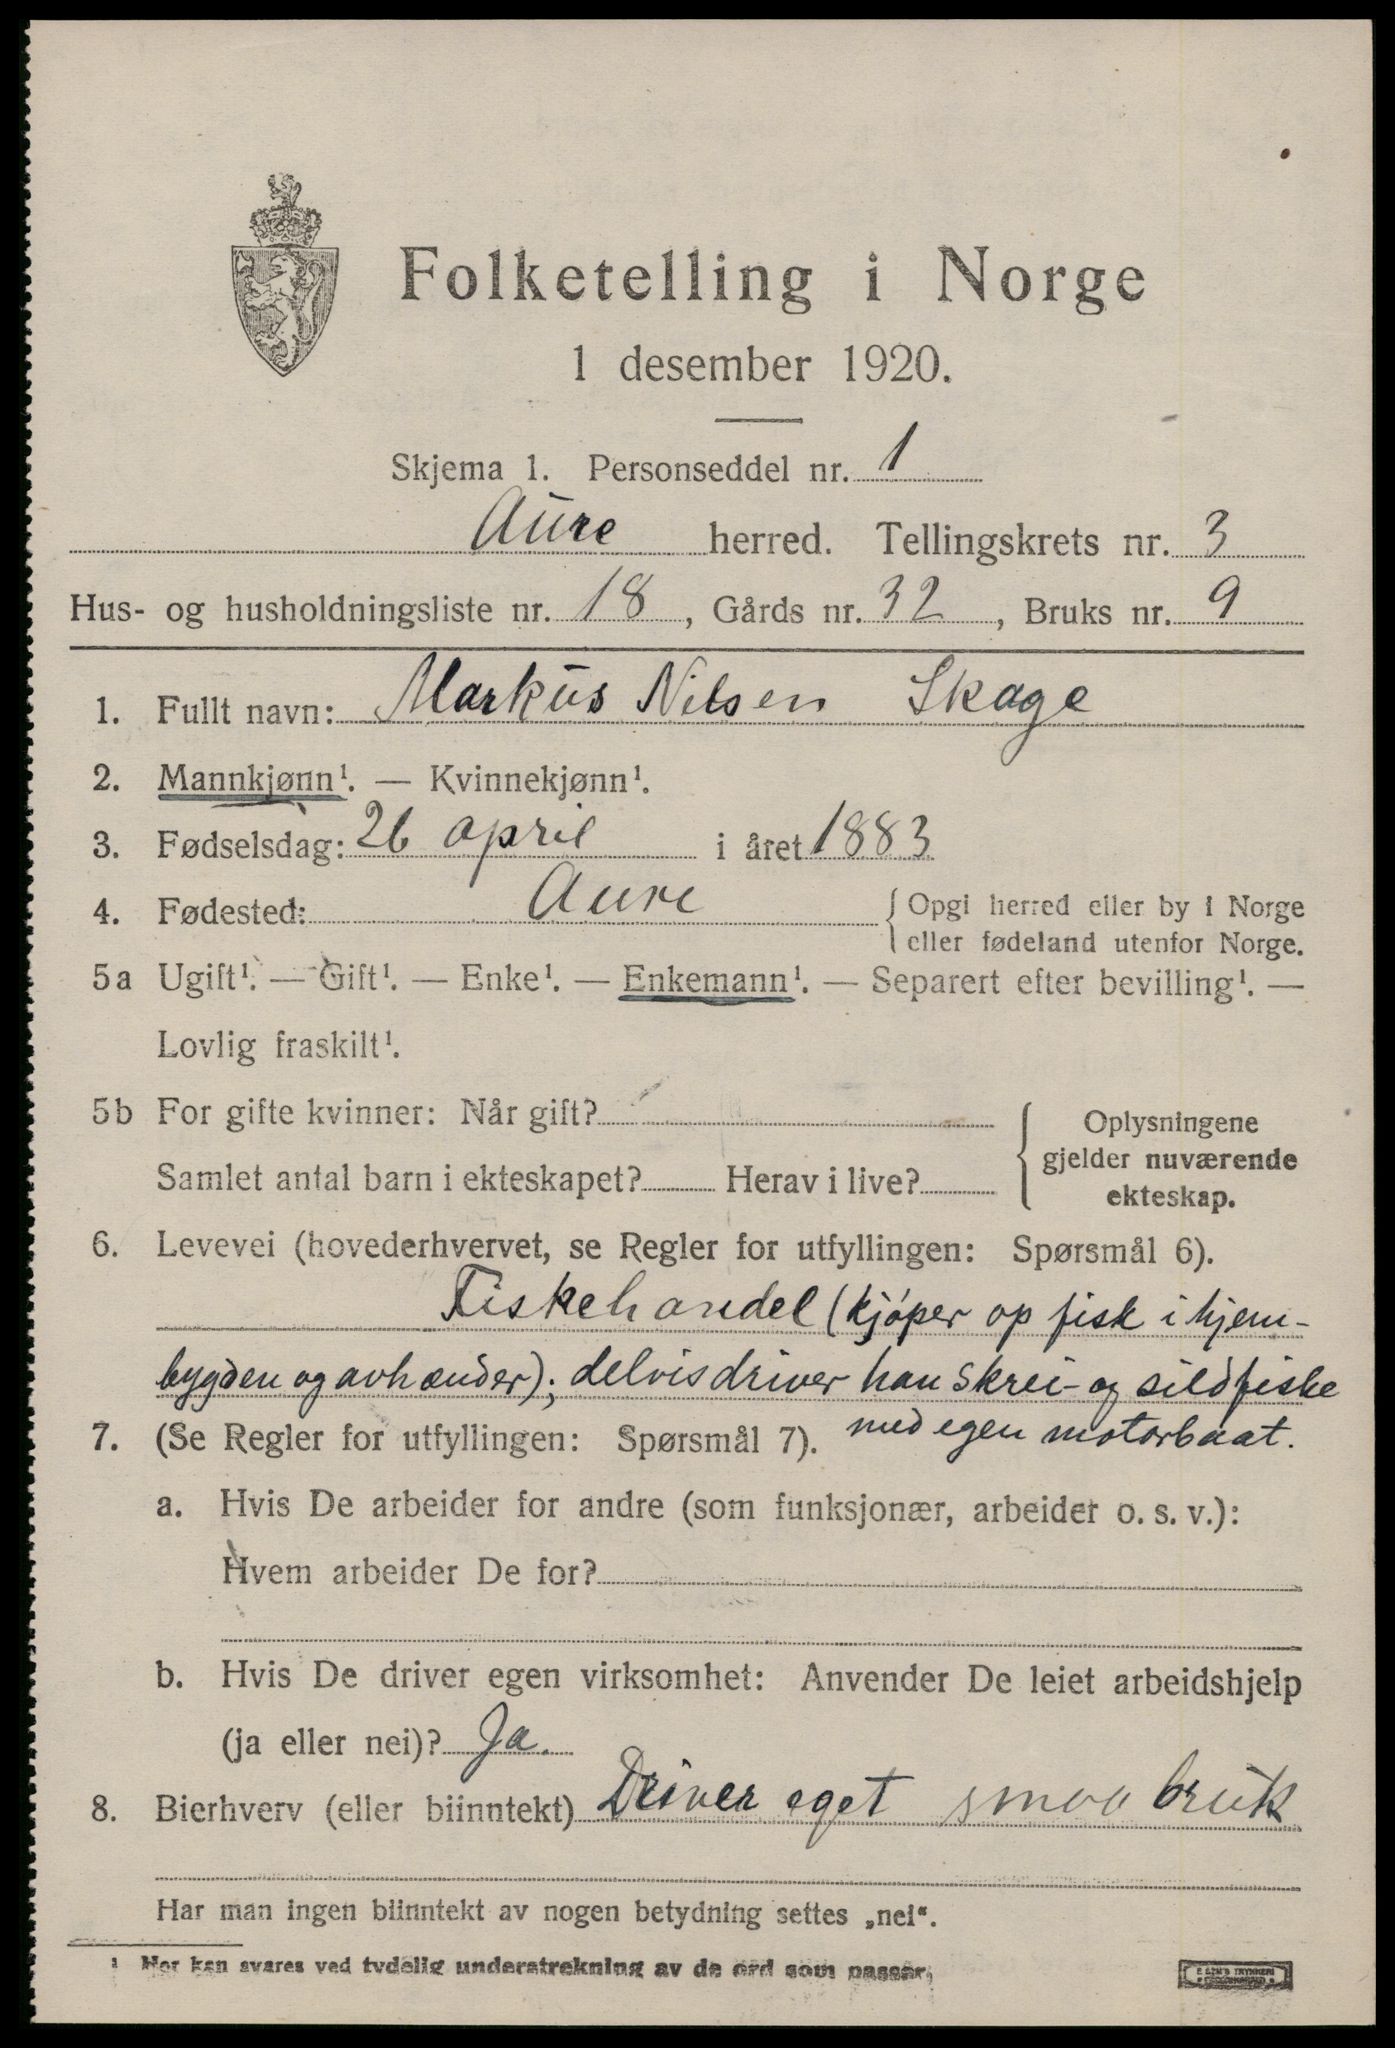 Folketelling i Norge
1 desember 1920.
Skjema 1. Personseddel nr. 1
Aure herred. Tellingskrets nr. 3
Hus- og husholdningsliste nr. 18, Gårds nr. 32, Bruks nr. 9
1. Fullt navn: Markus Nilsen Skage
2. Mannkjønn¹. — Kvinnekjønn¹.
3. Fødselsdag: 26 april i året 1883
4. Fødested: Aure { Opgi herred eller by i Norge
eller fødeland utenfor Norge.
5a Ugift¹. — Gift¹. — Enke¹. — Enkemann¹. — Separert efter bevilling¹. —
Lovlig fraskilt¹.
5b For gifte kvinner: Når gift? { Oplysningene
gjelder nuværende
Samlet antal barn i ekteskapet? Herav i live? ekteskap.
6. Levevei (hovederhvervet, se Regler for utfyllingen: Spørsmål 6).
Fiskehandel (kjøper op fisk i hjem-
bygden og avhænder); delvis driver han skrei- og sildfiske
med egen motorbaat.
7. (Se Regler for utfyllingen: Spørsmål 7).
a. Hvis De arbeider for andre (som funksjonær, arbeider o. s. v.):
Hvem arbeider De for?
b. Hvis De driver egen virksomhet: Anvender De leiet arbeidshjelp
(ja eller nei)? Ja.
8. Bierhverv (eller biinntekt) Driver eget smaabruk
Har man ingen biinntekt av nogen betydning settes „nei“.
¹ Her kan svares ved tydelig understrekning av de ord som passer.